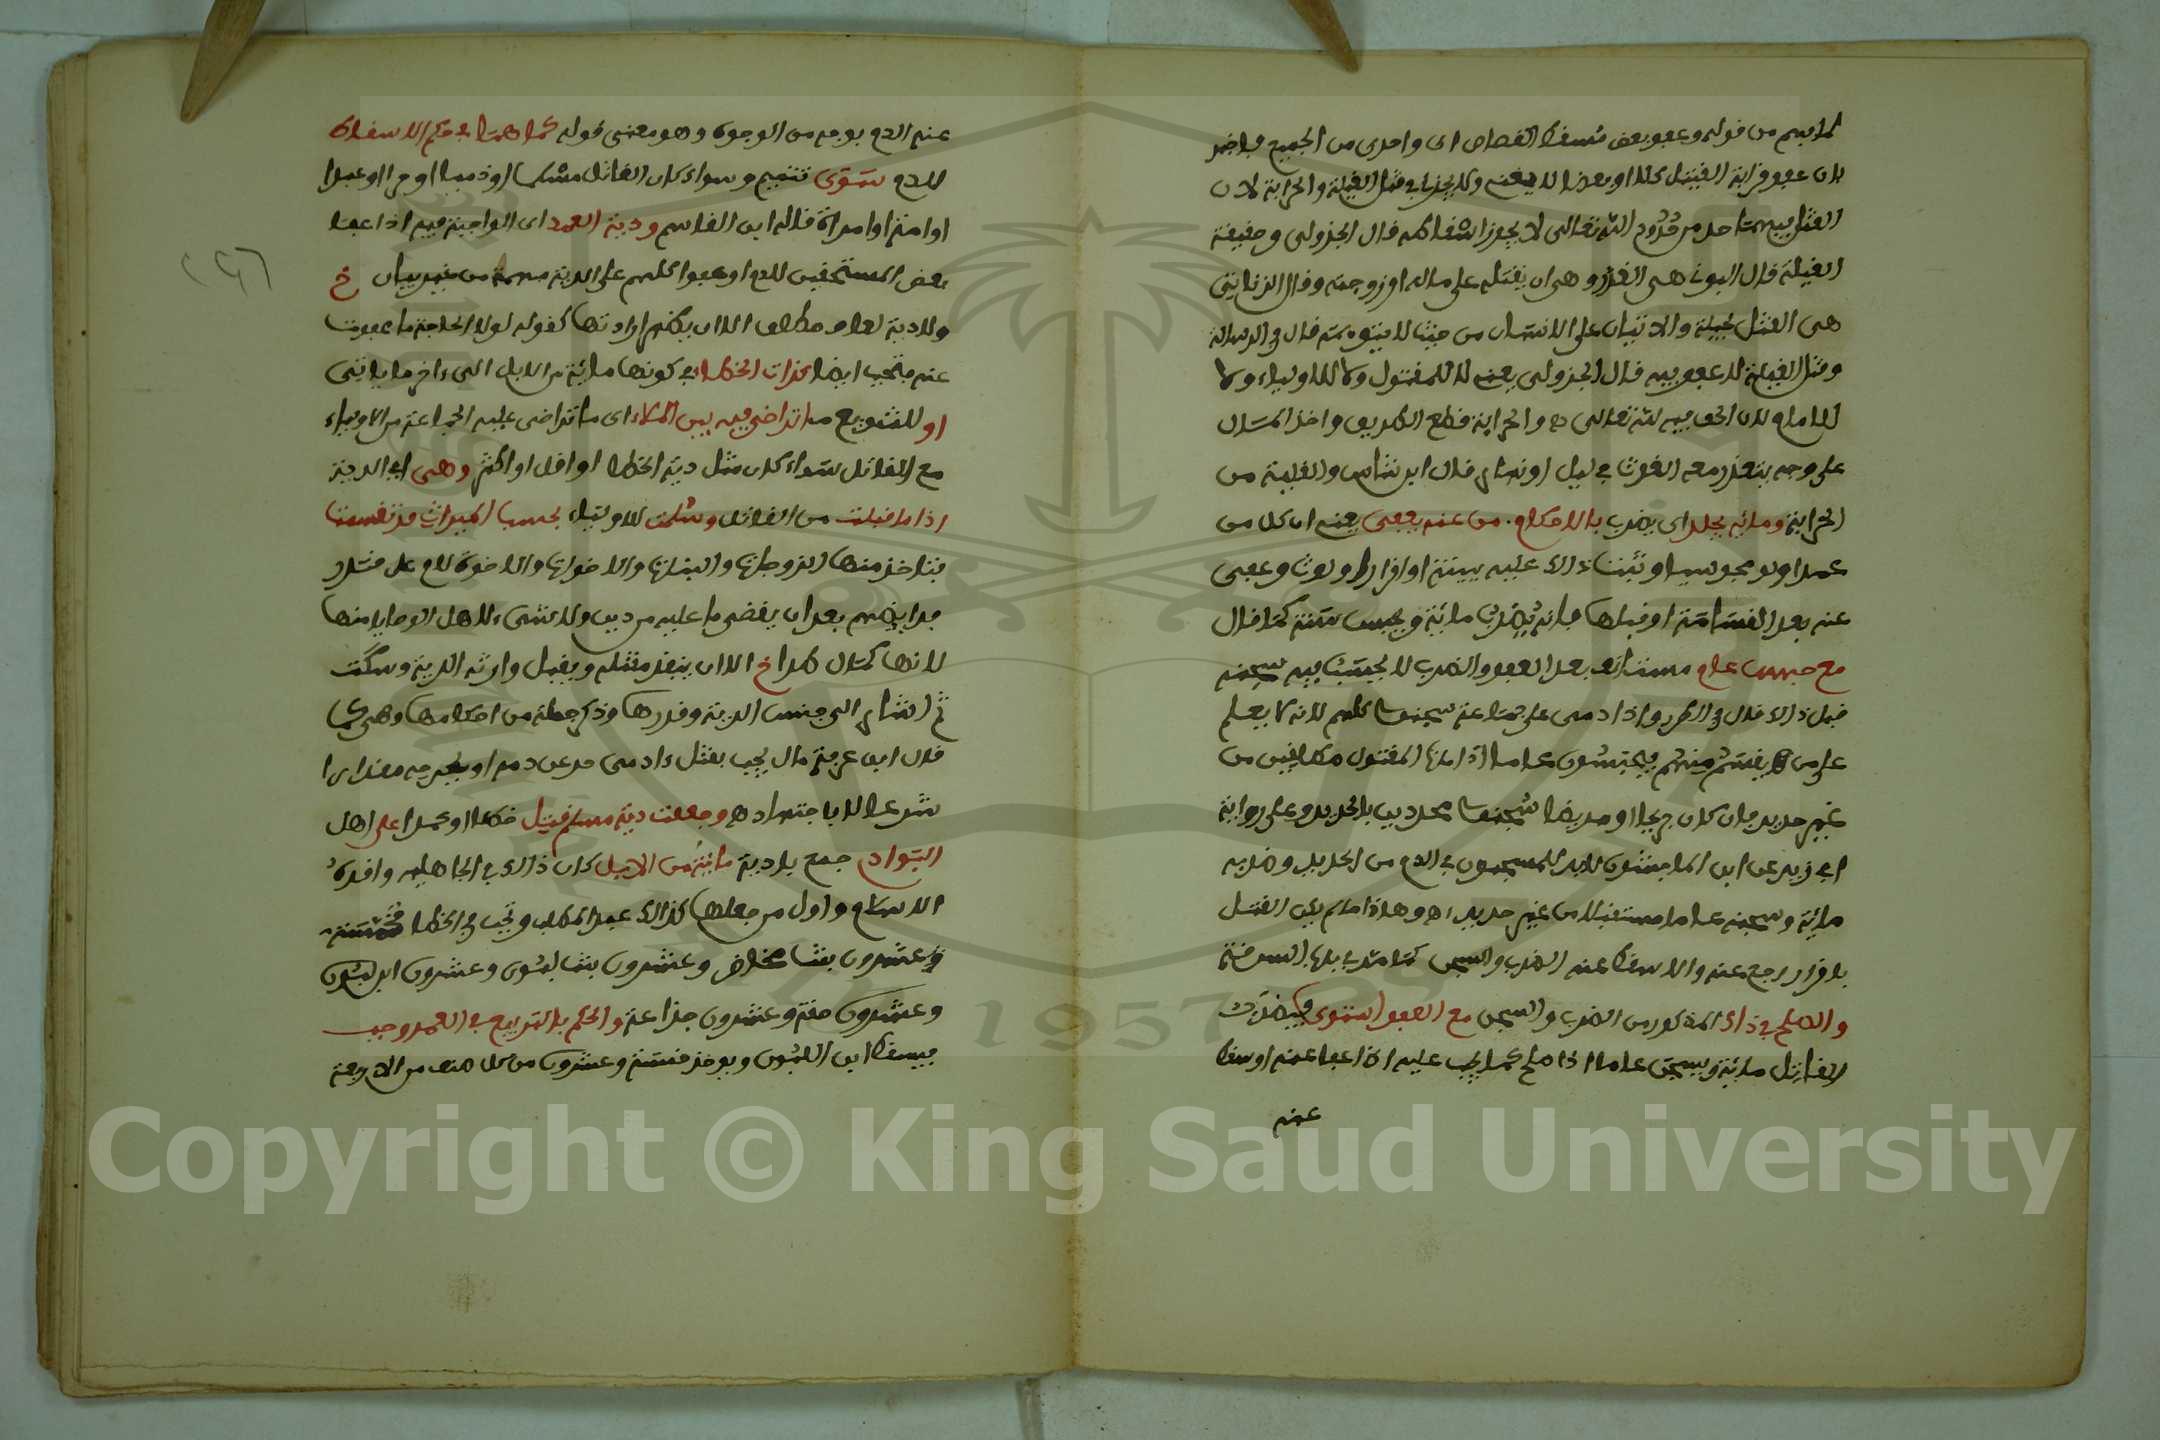 لما يتوهم من قوله وعفو بعض مسقط القصاص اى واحدى من الجميع فاخبر
بان عفو قرابة القتيل كلا او بعضا لا يغنى ولا يجزا فى قتل الغيلة والحرابة لان
القتل فيهما حد من حدود الله تعالى لا يجوز اسقاطه قال الجزولى وحقيقة
الغيلة قال البونى هى الغدر وهى ان يقتله على ماله او زوجته وقال الزناتى
هى القتل بحيلة والاتيان على الانسان من حيث لا يتوهم قال فى الرسالة
وقتل الغيلة لا عفو فيه قال الجزولى يعنى لا للمقتول ولا للاولياء ولا
للامام لان الحق فيه لله تعالى ه والحرابة قطع الطريق واخذ المال
على وجه يتعذر معه الغوث فى ليل او نهار قال ابن شاس والغيلة من
الحرابة ومائة يجلد اى يضرب بالاحكام من عنه يعفى يعنى ان كل من
عمدا ولو مجوسيا وثبت ذلك عليه ببينة او اقرار او لوث وعفى
عنه بعد القسامة او قبلها فانه يضرب مائة ويحبس سنة كما قال
مع حبس عام مستانف بعد العفو والضرب لا يحتسب فيه سجنه
قبل ذلك قال فى الطرر واذا دمى على جماعة سجنوا كلهم لانه لا يعلم
على من يقسم منهم فيحبسون عاما اذا مات المقتول مطلقين من
غير حديد فان كان جريحا او مريضا سجنوا محددين بالحديد وعلى رواية
ابى زيد عن ابن الماجشون لابد للمسجون فى الدم من الحديد وضربه
مائة وسجنه عاما مستقبلا من غير حديد اه وهذا ما لم يكن القتل
باقرار رجع عنه والا سقط عنه الضرب والسجن كما مر فى باب السرقة
والصلح فى ذاك المذكور من الضرب والسجن مع العفو استوى فيضرب
القاتل مائة ويسجن عاما اذا صلح كما يجب عليه اذا عفا عنه او سقط
عنه
عنه الدم بوجه من الوجوه وهو معنى قوله كما هما فى حكم الاسقاط
للدم سوى تتميم وسواء كان القاتل مسلما او ذميا او حرا او عبدا
او امة او امراة قاله ابن القاسم ودية العمد اى الواجبة فيه اذا عفا
بعض المستحقين للدم او عفوا كلهم على الدية مبهمة من غير بيان خ
ولا دية لعاف مطلق الا ان يظهر ارادتها كقوله لولا الحاجة ما عفوت
عنه فتجب ايضا كذات الخطا فى كونها مائة من الابل الى ءاخر ما ياتى
او للتنويع ما تراضى فيه بين الملا اى ما تراضى عليه الجماعة من الاولياء
مع القاتل سواء كان مثل دية الخطا او اقل او اكثر وهى اى الدية
اذا ما قبلت من القاتل وسلمت للاولياء بحسب الميراث قد تقسمت
فتاخذ منها الزوجات والبنات والاخوات والاخوة للام على قدر
فرايضهم بعد ان يقضى ما عليه من دين ولا شىء لاهل الوصايا منها
لانها كمال طرا خ الا ان ينفذ مقتله ويقبل وارثه الدية وسكت
ثم اشار الى جنس الدية وقدرها وذكر جملة من احكامها وهى كما
قال ابن عرفة مال يجب بقتل ءادمى حر عن دمه او بجرحه مقدارا
شرعا لا باجتهاد ه وجعلت دية مسلم قتل خطا او عمدا على اهل
البواد جمع بادية مائة من الابل كان ذلك فى الجاهلية واقره
الاسلام واول من جعلها كذلك عبد المطلب وتجب فى الخطا مخمسة
وعشرون بنت مخاض وعشرون بنت لبون وعشرون ابن لبون
وعشرون حقة وعشرون جذاعة والحكم بالتربيع فى العمد وجب
فيسقط ابن اللبون ويوخذ خمسة وعشرون من كل صنف من الاربعة
Copyright © King Saud University
1957